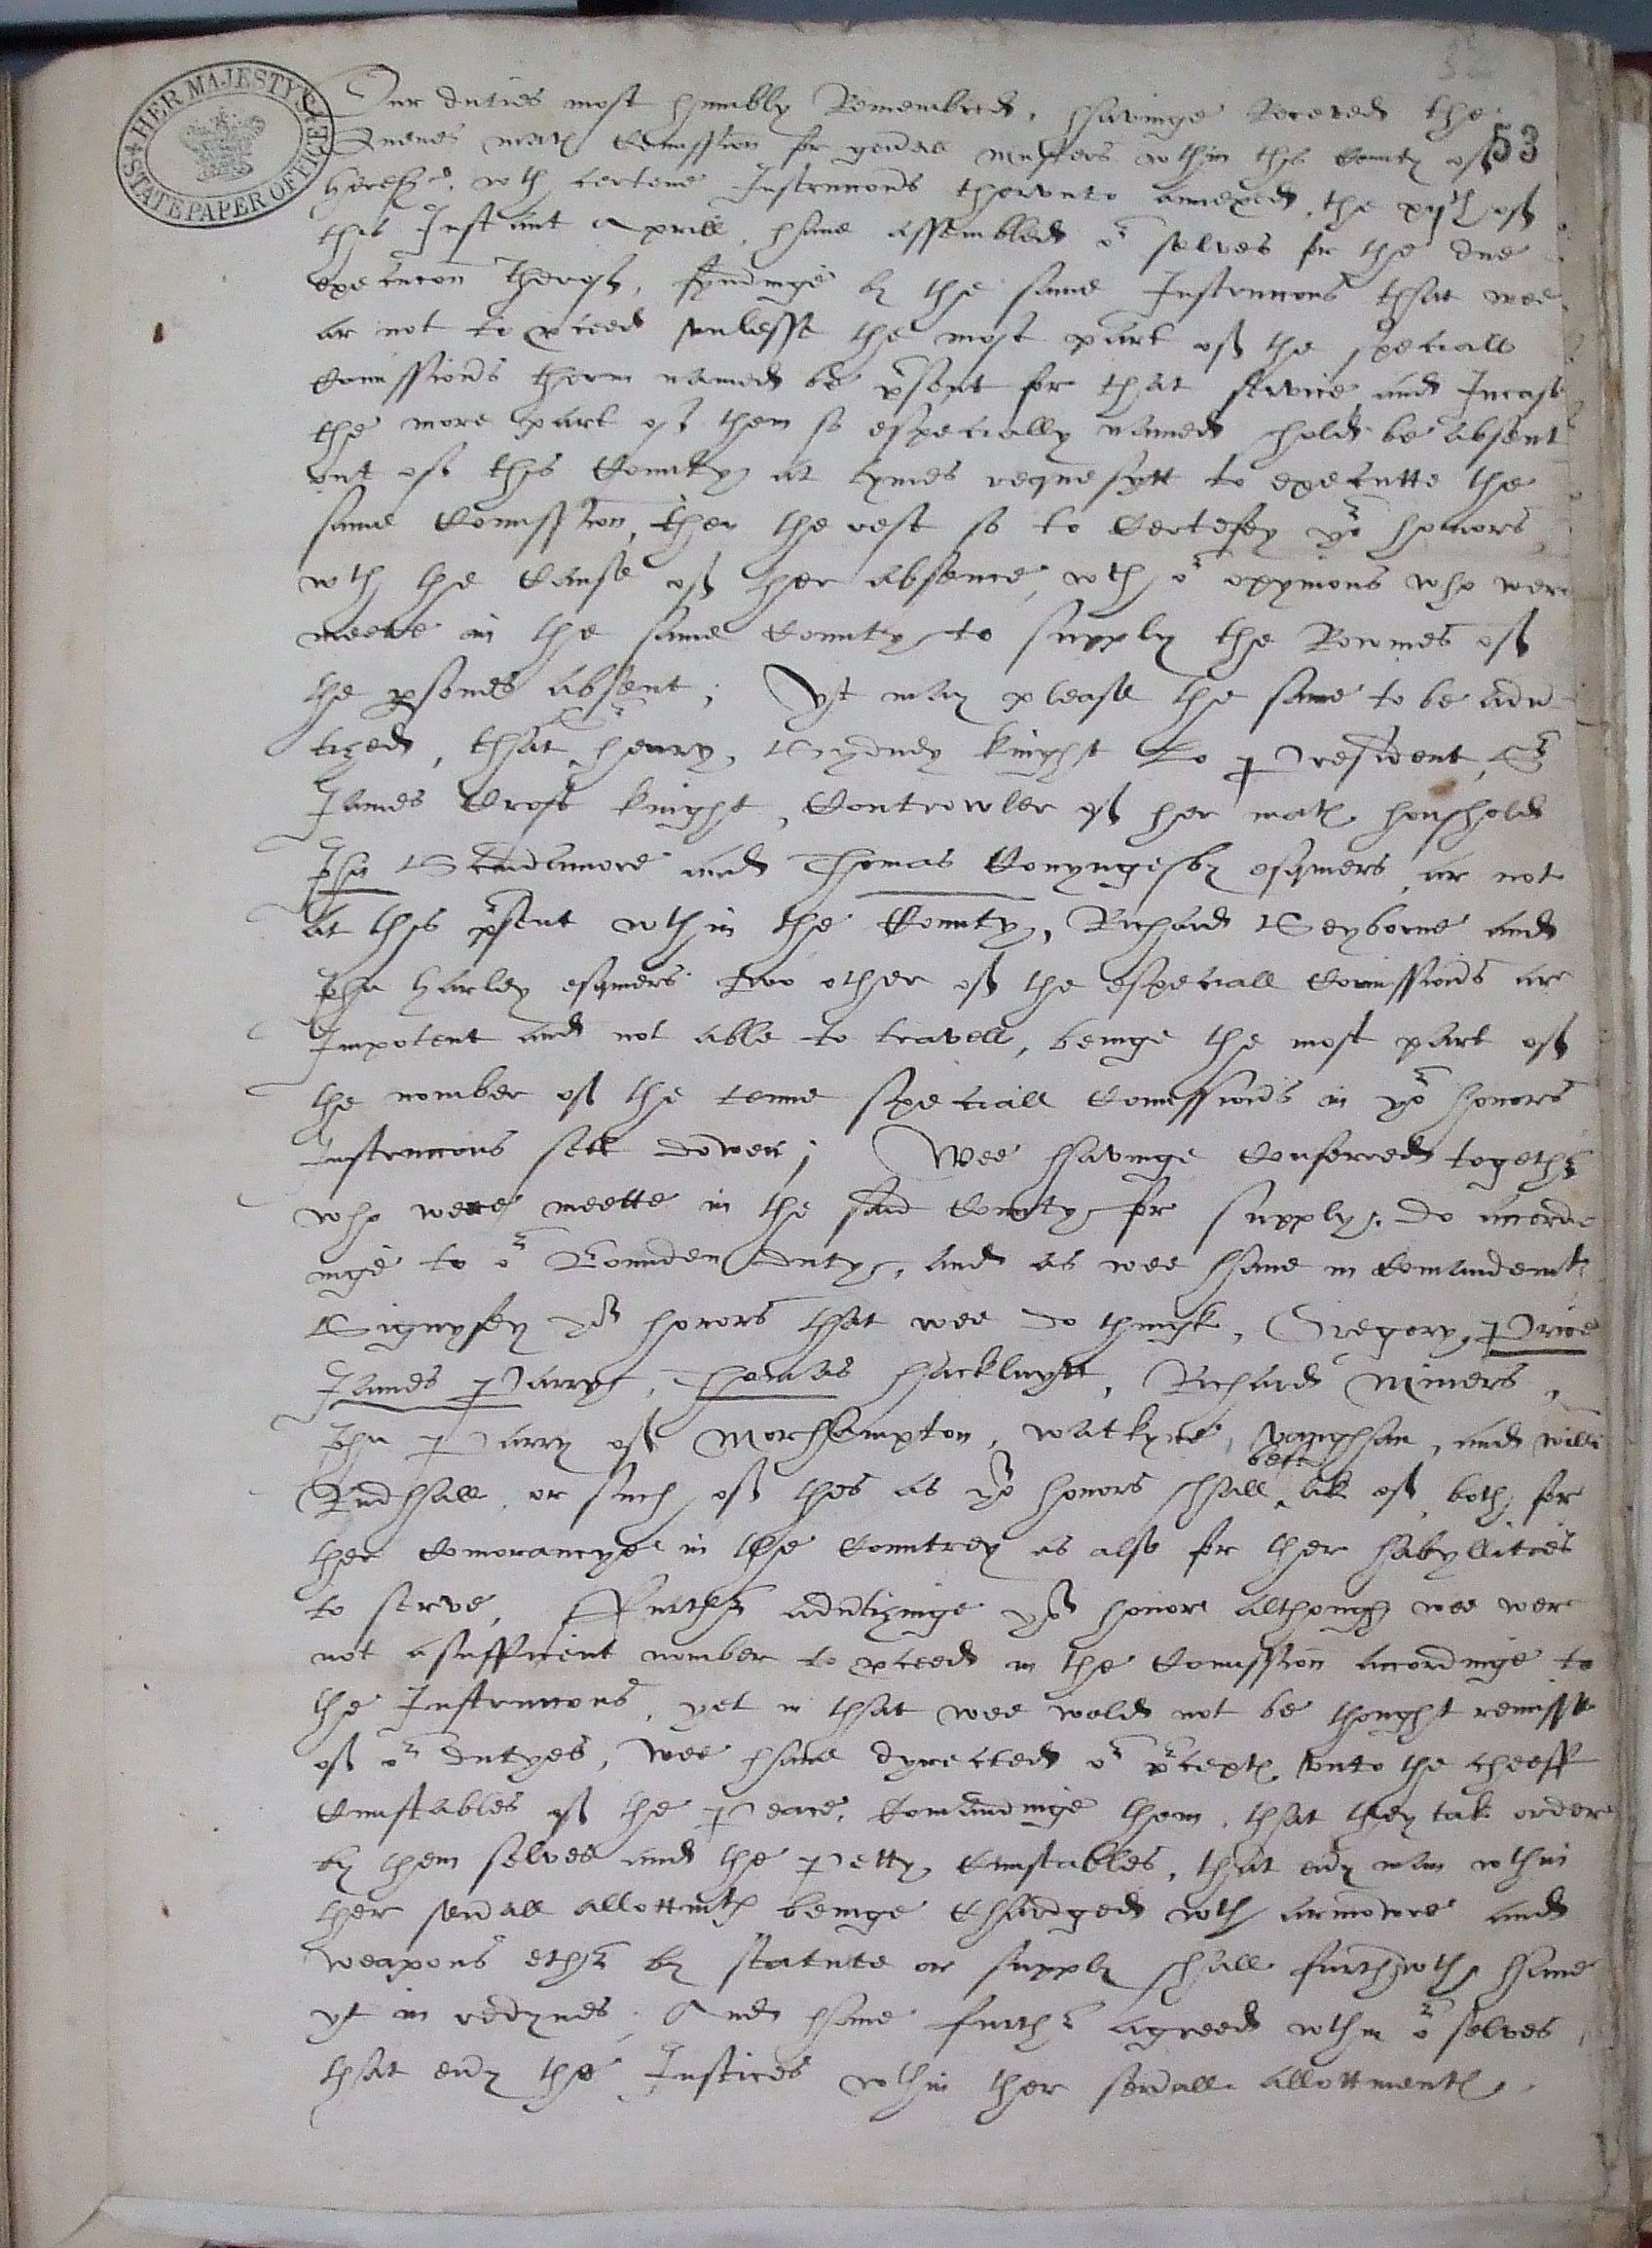 HER MAJESTY'S STATE PAPER OFFICE
53
Our duties most humbly Remembred, havinge Receved the
Quenes matẽ Comission for genˀall musters wthin this County of
Herefˀ, wth certene Instruccons therunto annexed, the xijth of
this Instant Aprill, have assembled oʳ selves for the due
execucon therof, fyndinge by the same Instruccons that wee
ar not to ꝓceed unlesse the most part of the speciall
Comissionˀs therin named be pʳsent for that service, and Incase
the more part of them so especially named shold be absent
out of this County at tymes requesytt to executte the
same Comission, then the rest so to Certefey yoʳ honors,
wth the Cause of ther absence, wth oʳ opynions who wer
meete in the same County to supply the Rowmes of
the ꝑsones absent, Yt may please the same to be adu-
tized, that Sʳ henry Sydney knight Lo President, Sʳ
James Croft knight, Controwler of her matẽ houshold
Jhn Scudamore and Thomas Conyngesby esquiers, ar not
at this pʳsent wthin the County, Richard Seyborne and
Jhn Harley esquiers two other of the especiall Comissionˀs ar
Impotent and not able to travell, beinge the most part of
the nomber of the tenne speciall Comissionˀs in yoʳ honors
Instruccons sett downe; Wee havinge Conferred togethʳ
who were meette in the said County for supply, do accord-
inge to oʳ bounden duty, and as wee have in Comandemt
Signyfey yoʳ honors that wee do thinck, Gregory Price
James Parry, Thomas hackluytt, Richard Mîners,
John Parry of Morhampton, Watkyne, Vaughan, and Willi
Rudhall, or such of thes as yoʳ honors shall best lik of, both for
ther Comorancye in the Countrey as also for ther habyllities
to serve, Furthʳ adutizinge yoʳ honors although wee wer
not a sufficient nomber to ꝓceed in the Comission accordinge to
the Instruccons, yet in that wee wold not be thought remisse
of oʳ dutyes, wee have dyrected oʳ pʳceptẽ unto the cheeff
Cunstables of the Peace, Comandinge them, that they tak order
by them selves and the Petty Cunstables, that evˀy man wthin
ther sevˀall allottmtẽ beinge Chardged wth armowre and
weapons ethʳ by statute or supply shall furthwth have
yt in redynes; And have furthʳ agreed wthin oʳ selves,
that evˀy the Justices wthin ther sevˀall allottmentẽ